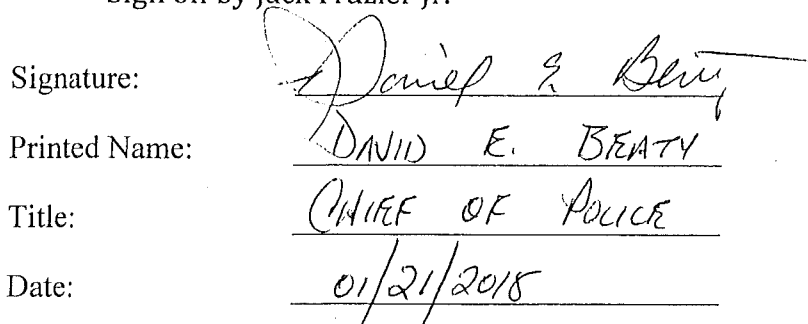 Sign off by Jack Frazier Jr.
Signature: Daniel E Beaty
Printed Name: DAVID E. BEATY
Title: CHIEF OF POLICE
Date: 01/21/2018